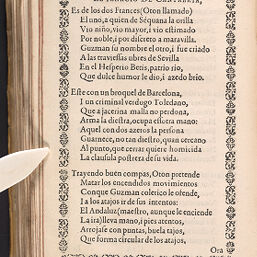 Es de los dos Frances (Oton llamado)
El uno, a quien de Séquana la orilla
Vio niño, vio mayor, i vio estimado
Por noble, i por discreto a maravilla.
Guzman su nombre el otro, i fue criado
A las traviessas ubres de Sevilla
En el Hesperio Betis, patrio rio,
Que dulce humor le dio, i azedo brio.
Este con un broquel de Barcelona,
I un criminal verdugo Toledano,
Que a jacerina malla no perdona,
Arma la diestra, ocupa esotra mano:
Aquel con dos azeros la persona
Guarnece, no tan diestro, quan cercano
Al punto, que cerrar quiere homicida
La clausula postrera de su vida.
Trayendo buen compas, Oton pretende
Matar los encendidos movimientos
Con que Guzman colerico le ofende,
I a los atajos ir de sus intentos:
El Andaluz (maestro, aunque le enciende
La ira) lleva mano, i pies atentos,
Arrojase con puntas, buela tajos,
Que forma circular de los atajos,
Ora